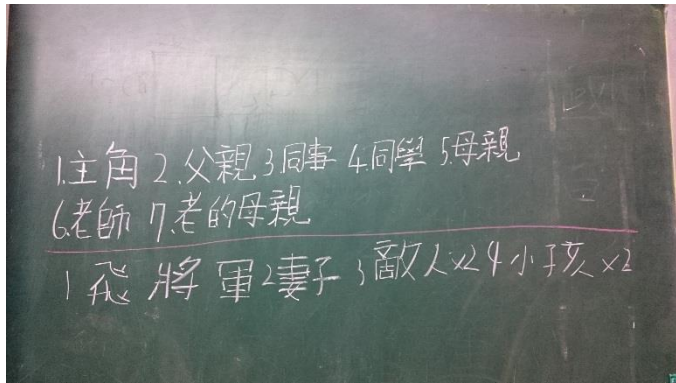 1.主角 2.父親 3同事 4.同學 5.母親
6.老師 7.老的母親
1 飛將軍 2妻子 3敵人x2 4小孩x2